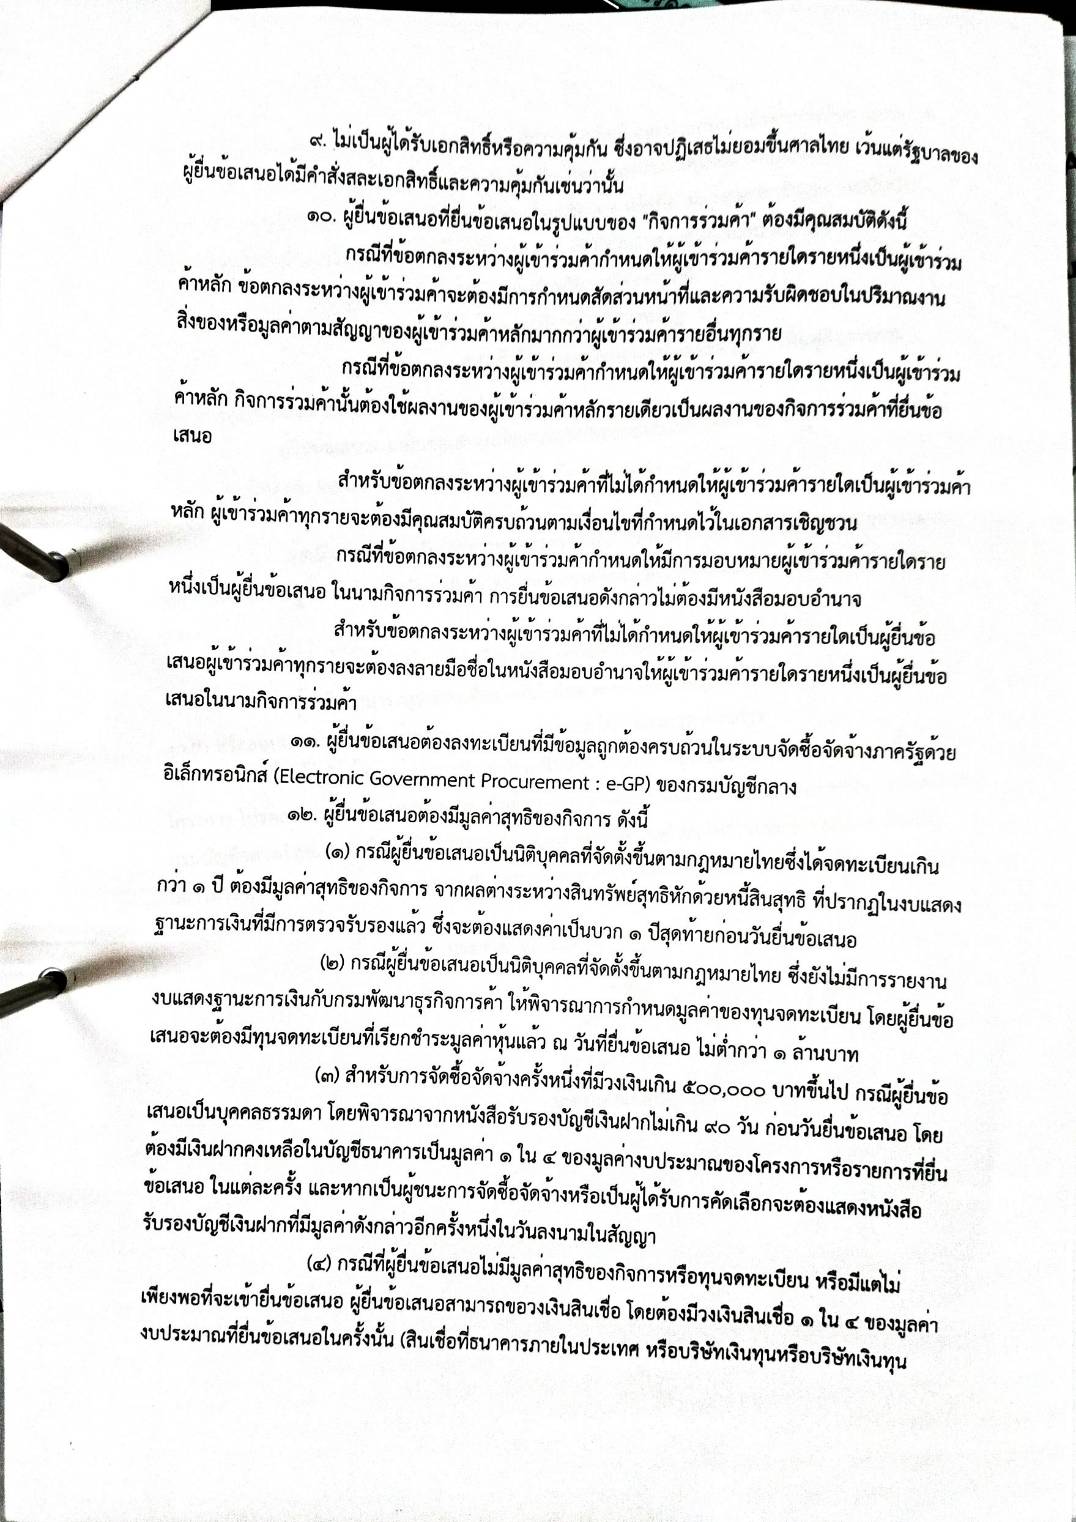 ๙. ไม่เป็นผู้ได้รับเอกสิทธิ์หรือความคุ้มกัน ซึ่งอาจปฏิเสธไม่ยอมขึ้นศาลไทย เว้นแต่รัฐบาลของ
ผู้ยื่นข้อเสนอได้มีคำสั่งสละเอกสิทธิ์และความคุ้มกันเช่นว่านั้น
๑๐. ผู้ยื่นข้อเสนอที่ยื่นข้อเสนอในรูปแบบของ "กิจการร่วมค้า" ต้องมีคุณสมบัติดังนี้
กรณีที่ข้อตกลงระหว่างผู้เข้าร่วมค้ากำหนดให้ผู้เข้าร่วมค้ารายใดรายหนึ่งเป็นผู้เข้าร่วม
ค้าหลัก ข้อตกลงระหว่างผู้เข้าร่วมค้าจะต้องมีการกำหนดสัดส่วนหน้าที่และความรับผิดชอบในปริมาณงาน
สิ่งของหรือมูลค่าตามสัญญาของผู้เข้าร่วมค้าหลักมากกว่าผู้เข้าร่วมค้ารายอื่นทุกราย
กรณีที่ข้อตกลงระหว่างผู้เข้าร่วมค้ากำหนดให้ผู้เข้าร่วมค้ารายใดรายหนึ่งเป็นผู้เข้าร่วม
ค้าหลัก กิจการร่วมค้านั้นต้องใช้ผลงานของผู้เข้าร่วมค้าหลักรายเดียวเป็นผลงานของกิจการร่วมค้าที่ยื่นข้อ
เสนอ
สำหรับข้อตกลงระหว่างผู้เข้าร่วมค้าที่ไม่ได้กำหนดให้ผู้เข้าร่วมค้ารายใดเป็นผู้เข้าร่วมค้า
หลัก ผู้เข้าร่วมค้าทุกรายจะต้องมีคุณสมบัติครบถ้วนตามเงื่อนไขที่กำหนดไว้ในเอกสารเชิญชวน
กรณีที่ข้อตกลงระหว่างผู้เข้าร่วมค้ากำหนดให้มีการมอบหมายผู้เข้าร่วมค้ารายใดราย
หนึ่งเป็นผู้ยื่นข้อเสนอ ในนามกิจการร่วมค้า การยื่นข้อเสนอดังกล่าวไม่ต้องมีหนังสือมอบอำนาจ
สำหรับข้อตกลงระหว่างผู้เข้าร่วมค้าที่ไม่ได้กำหนดให้ผู้เข้าร่วมค้ารายใดเป็นผู้ยื่นข้อ
เสนอผู้เข้าร่วมค้าทุกรายจะต้องลงลายมือชื่อในหนังสือมอบอำนาจให้ผู้เข้าร่วมค้ารายใดรายหนึ่งเป็นผู้ยื่นข้อ
เสนอในนามกิจการร่วมค้า
๑๑. ผู้ยื่นข้อเสนอต้องลงทะเบียนที่มีข้อมูลถูกต้องครบถ้วนในระบบจัดซื้อจัดจ้างภาครัฐด้วย
อิเล็กทรอนิกส์ (Electronic Government Procurement : e-GP) ของกรมบัญชีกลาง
๑๒. ผู้ยื่นข้อเสนอต้องมีมูลค่าสุทธิของกิจการ ดังนี้
(๑) กรณีผู้ยื่นข้อเสนอเป็นนิติบุคคลที่จัดตั้งขึ้นตามกฎหมายไทยซึ่งได้จดทะเบียนเกิน
กว่า ๑ ปี ต้องมีมูลค่าสุทธิของกิจการ จากผลต่างระหว่างสินทรัพย์สุทธิหักด้วยหนี้สินสุทธิ ที่ปรากฏในงบแสดง
ฐานะการเงินที่มีการตรวจรับรองแล้ว ซึ่งจะต้องแสดงค่าเป็นบวก ๑ ปีสุดท้ายก่อนวันยื่นข้อเสนอ
(๒) กรณีผู้ยื่นข้อเสนอเป็นนิติบุคคลที่จัดตั้งขึ้นตามกฎหมายไทย ซึ่งยังไม่มีการรายงาน
งบแสดงฐานะการเงินกับกรมพัฒนาธุรกิจการค้า ให้พิจารณาการกำหนดมูลค่าของทุนจดทะเบียน โดยผู้ยื่นข้อ
เสนอจะต้องมีทุนจดทะเบียนที่เรียกชำระมูลค่าหุ้นแล้ว ณ วันที่ยื่นข้อเสนอ ไม่ต่ำกว่า ๑ ล้านบาท
(๓) สำหรับการจัดซื้อจัดจ้างครั้งหนึ่งที่มีวงเงินเกิน ๕๐๐,๐๐๐ บาทขึ้นไป กรณีผู้ยื่นข้อ
เสนอเป็นบุคคลธรรมดา โดยพิจารณาจากหนังสือรับรองบัญชีเงินฝากไม่เกิน ๙๐ วัน ก่อนวันยื่นข้อเสนอ โดย
ต้องมีเงินฝากคงเหลือในบัญชีธนาคารเป็นมูลค่า ๑ ใน ๔ ของมูลค่างบประมาณของโครงการหรือรายการที่ยื่น
ข้อเสนอ ในแต่ละครั้ง และหากเป็นผู้ชนะการจัดซื้อจัดจ้างหรือเป็นผู้ได้รับการคัดเลือกจะต้องแสดงหนังสือ
รับรองบัญชีเงินฝากที่มีมูลค่าดังกล่าวอีกครั้งหนึ่งในวันลงนามในสัญญา
(๔) กรณีที่ผู้ยื่นข้อเสนอไม่มีมูลค่าสุทธิของกิจการหรือทุนจดทะเบียน หรือมีแต่ไม่
เพียงพอที่จะเข้ายื่นข้อเสนอ ผู้ยื่นข้อเสนอสามารถขอวงเงินสินเชื่อ โดยต้องมีวงเงินสินเชื่อ ๑ ใน ๔ ของมูลค่า
งบประมาณที่ยื่นข้อเสนอในครั้งนั้น (สินเชื่อที่ธนาคารภายในประเทศ หรือบริษัทเงินทุนหรือบริษัทเงินทุน